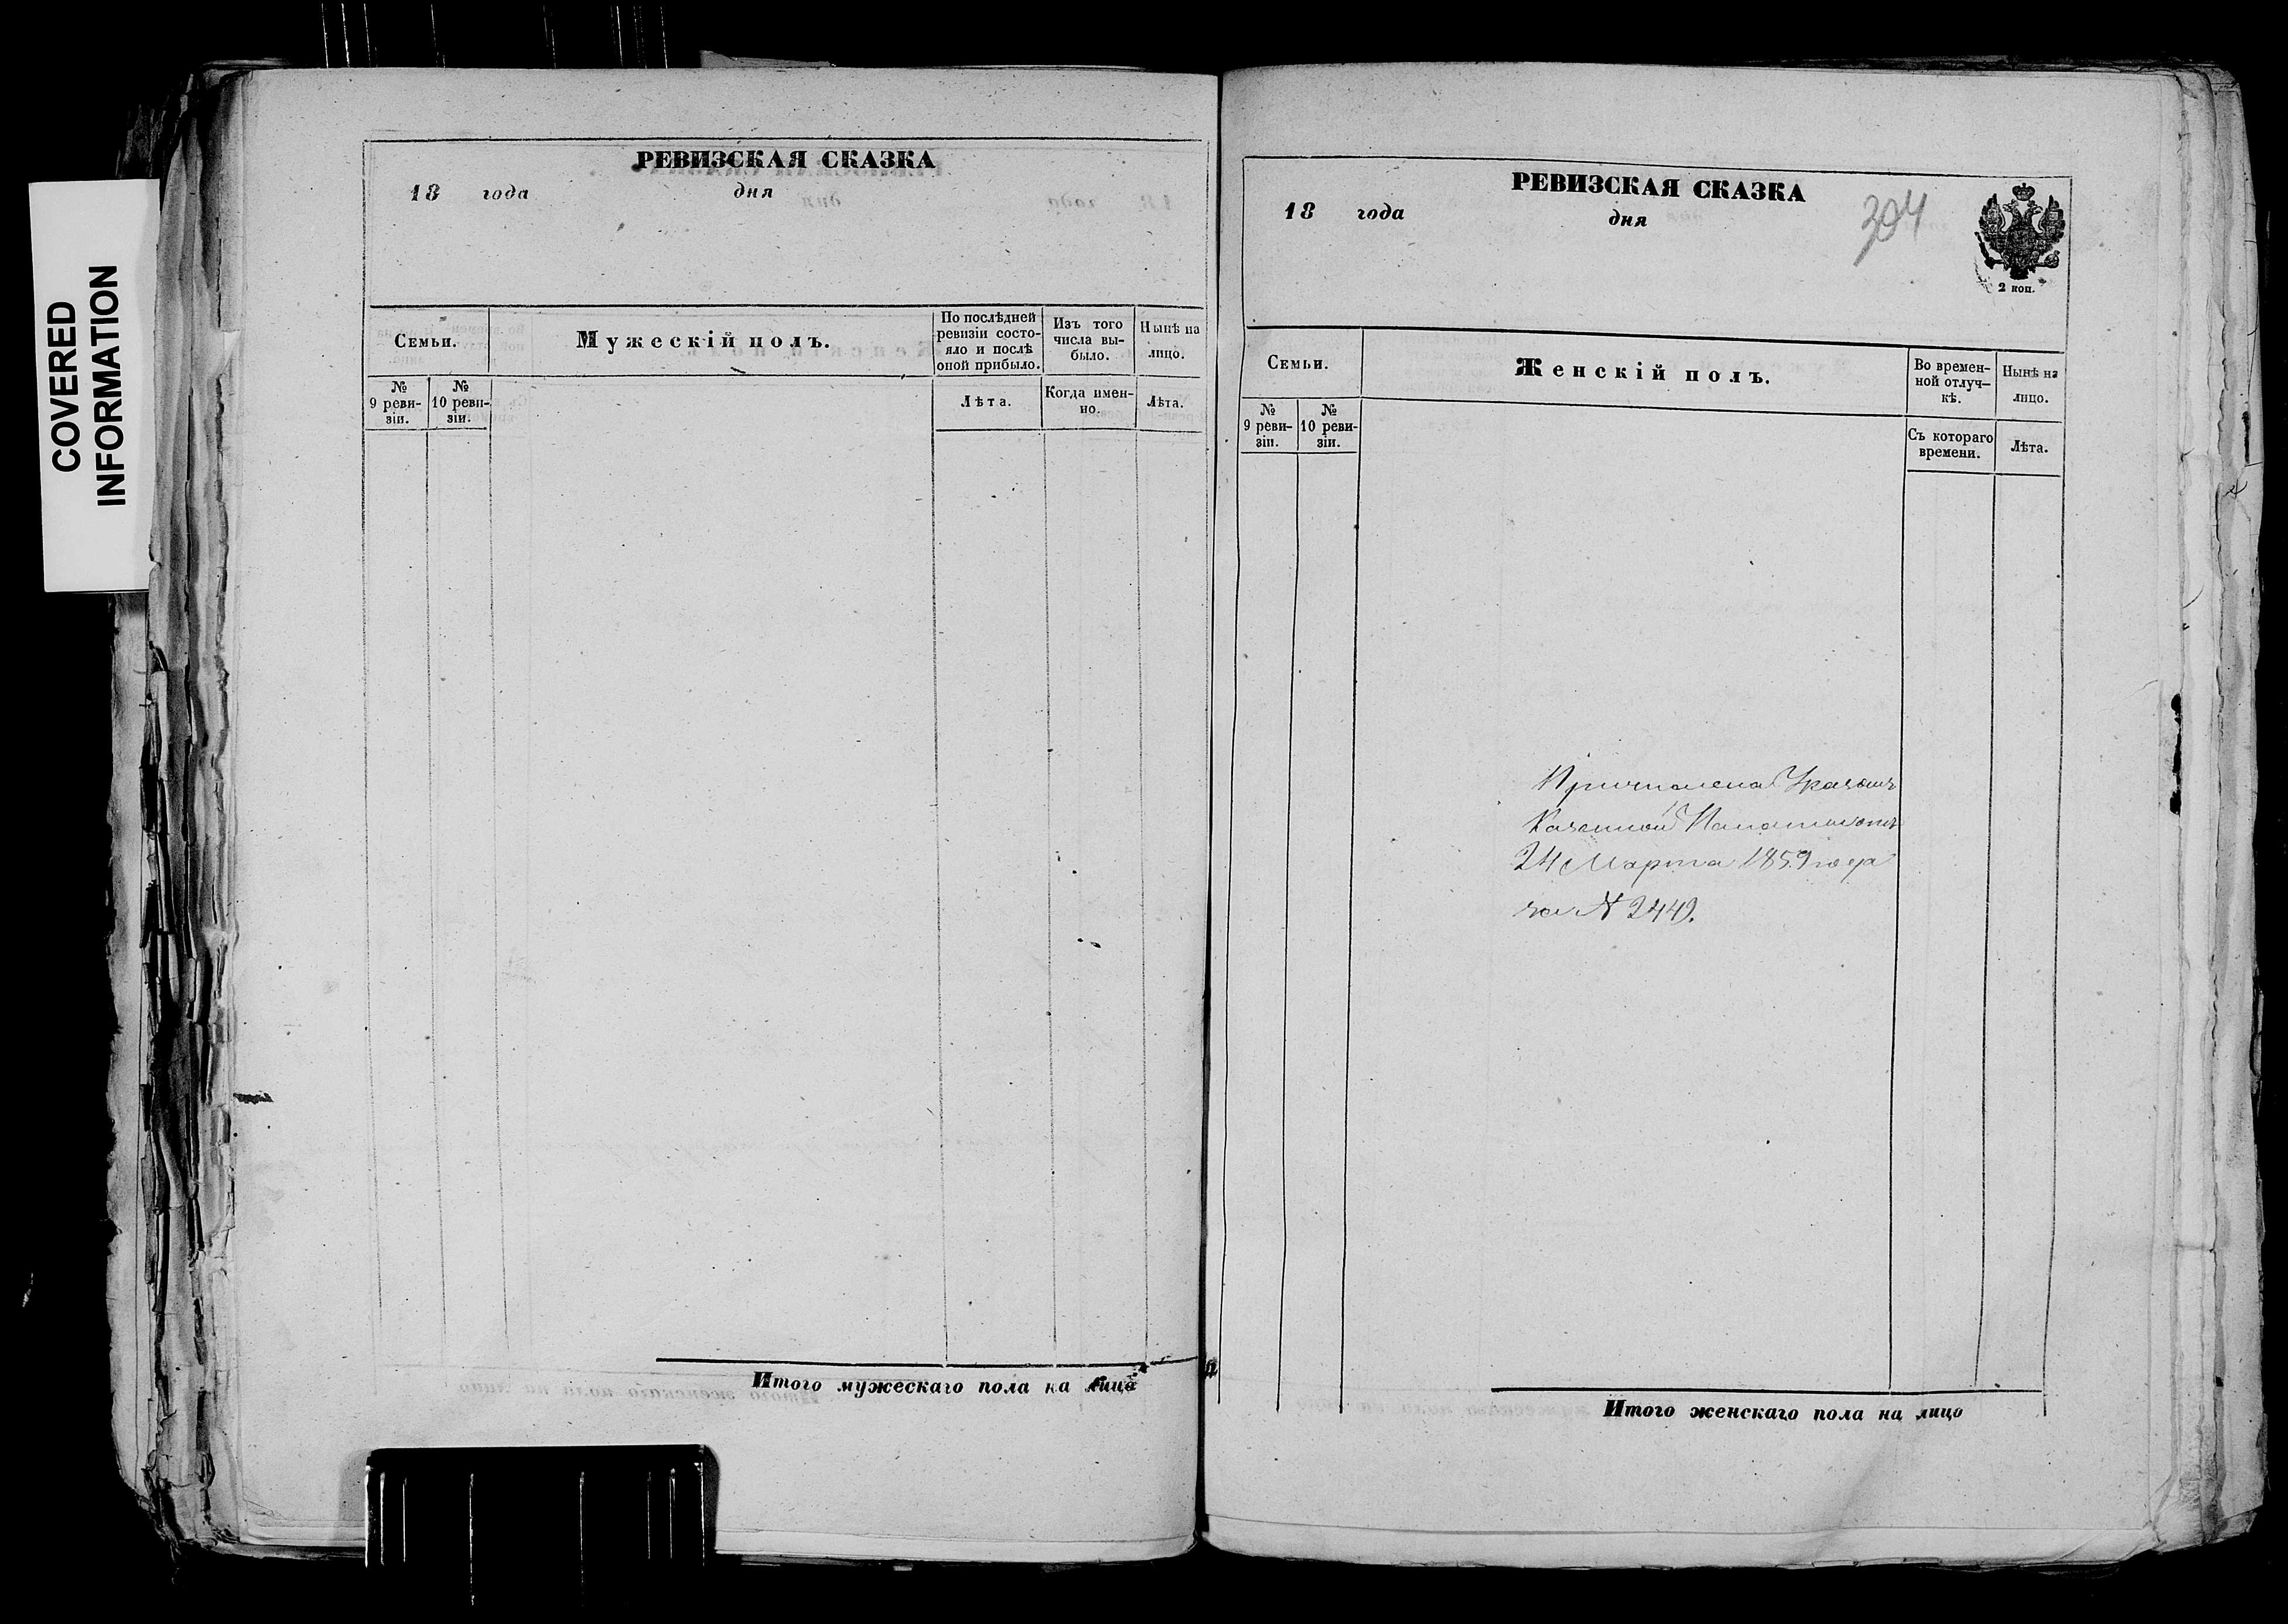 COVERED
INFORMATION
РЕВИЗСКАЯ СКАЗКА
18 года дня
Семьи.
Мужескій полъ.
По послѣдней
ревизіи состо-
яло и послѣ
оной прибыло.
Изъ того
числа вы-
было.
Нынѣ на
лицо.
№
9 реви-
зіи.
№
10 реви-
зіи.
Лѣта.
Когда имен-
но.
Лѣта.
Итого мужескаго пола на лицо
РЕВИЗСКАЯ СКАЗКА
18 года дня
304
2 коп.
Семьи.
Женскій полъ.
Во времен-
ной отлуч-
кѣ.
Нынѣ на
лицо.
№
9 реви-
зіи.
№
10 реви-
зіи.
Съ котораго
времени.
Лѣта.
Причислена Указомъ
Казенной Палаты отъ
24 Марта 1859 года
за № 2449.
Итого женскаго пола на лицо